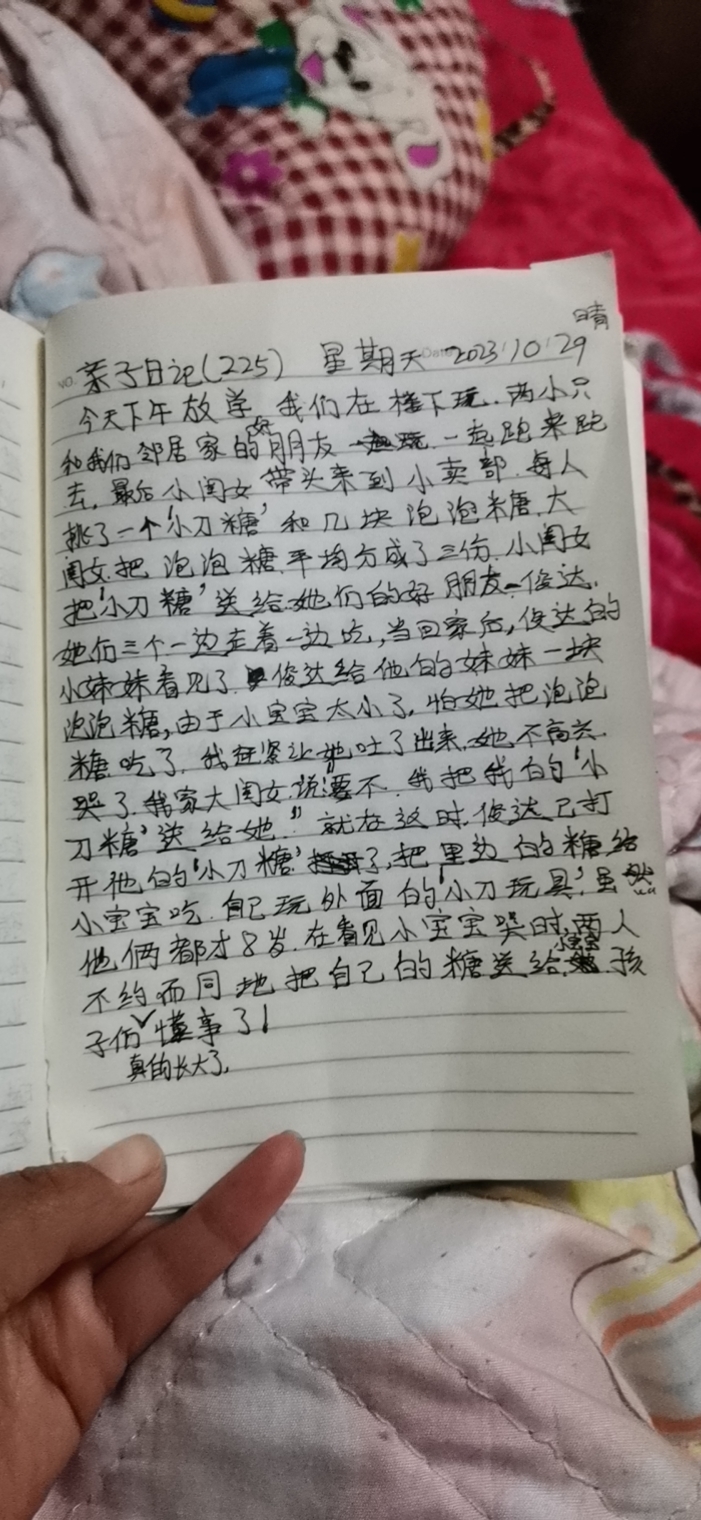 晴
亲子日记(225) 星期天 2023 10 29
今天下午放学,我们在楼下玩.两小只
和我们邻居家的好朋友一起跑来跑
去,最后小闺女带头来到小卖部.每人
挑了一个'小刀糖'和几块泡泡糖.大
闺女把泡泡糖平均分成了三份.小闺女
把'小刀糖'送给她们的好朋友—俊达.
她们三个一边走着一边吃,当回家后,俊达的
小妹妹看见了.俊达给他的妹妹一块
泡泡糖,由于小宝宝太小了,怕她把泡泡
糖吃了.我赶紧让她吐了出来.她不高兴.
哭了.我家大闺女说:"要不.我把我的'小
刀糖'送给她."就在这时.俊达已打
开他的'小刀糖'了,把里边的糖给
小宝宝吃.自己玩外面的'小刀玩具'.虽然
他俩都才8岁.在看见小宝宝哭时,两人
不约而同地把自己的糖送给小宝宝孩
子们真的长大了,懂事了!